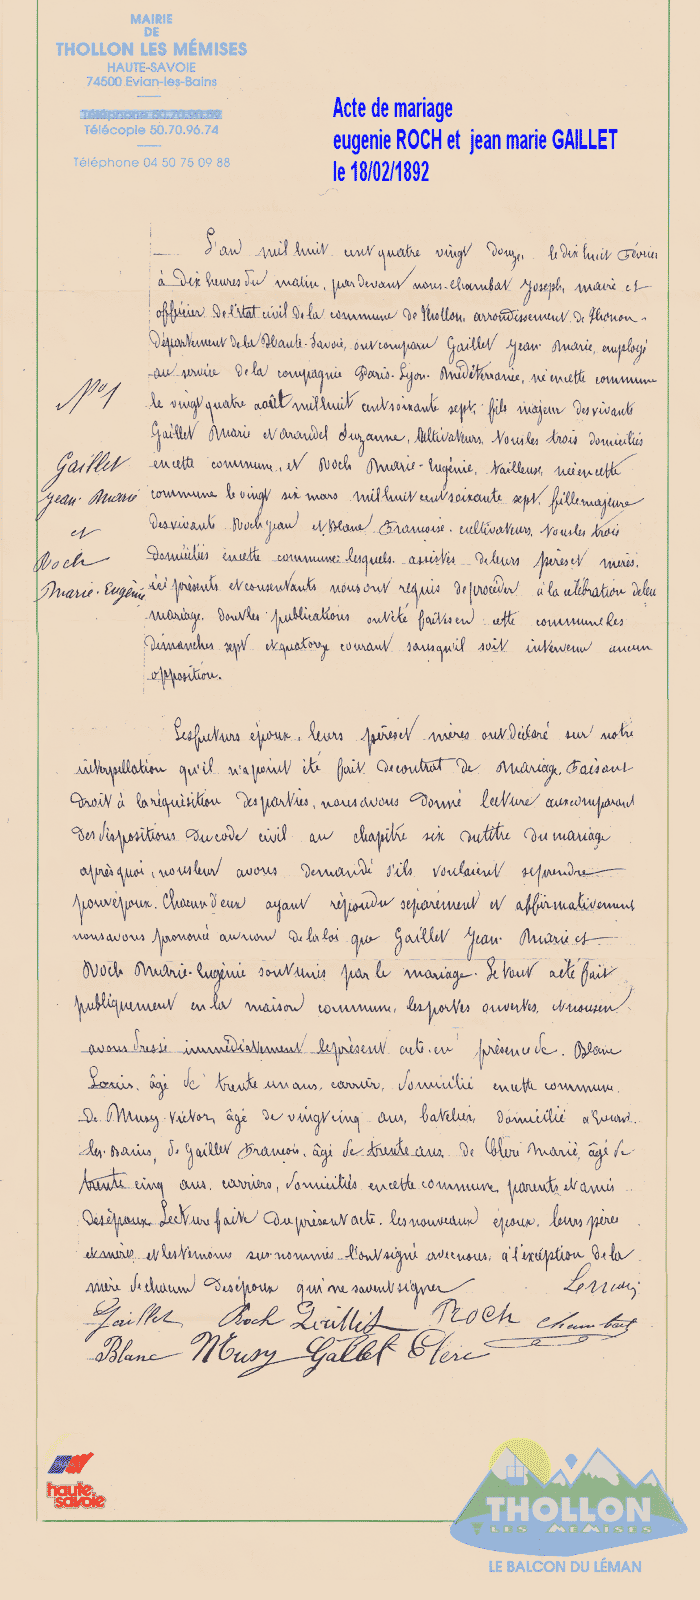 MAIRIE
DE
THOLLON LES MÉMISES
HAUTE-SAVOIE
74500 Evian-les-Bains
Téléphone 50.70.90.89
Télécopie 50.70.96.74
Téléphone 04 50 75 09 88
Acte de mariage
eugenie ROCH et jean marie GAILLET
le 18/02/1892
N°1
Gaillet
Jean-Marie
et
Roch
Marie-Eugénie
L'an mil huit cent quatre vingt douze, le dix huit Février
à dix heures du matin, par devant nous Chambat Joseph, maire et
officier de l'état civil de la commune de Thollon, arrondissement de Thonon,
département de la Haute-Savoie, ont comparu Gaillet Jean-Marie, employé
au service de la compagnie Paris-Lyon-Méditerranée, né en cette commune
le vingt quatre août mil huit cent soixante sept, fils majeur des vivants
Gaillet Marie et Arandel Suzanne, cultivateurs, tous les trois domiciliés
en cette commune, et Roch Marie-Eugénie, tailleuse, née en cette
commune le vingt six mars mil huit cent soixante sept, fille majeure
des vivants Roch Jean et Blanc Françoise, cultivateurs, tous les trois
domiciliés en cette commune; lesquels assistés de leurs pères et mères,
ici présents et consentants nous ont requis de procéder à la célébration de leur
mariage, dont les publications ont été faites en cette commune les
dimanches sept et quatorze courant sans qu'il soit intervenu aucune
opposition.
Les futurs époux, leurs pères et mères ont déclaré sur notre
interpellation qu'il n'a point été fait de contrat de mariage. Faisant
droit à la réquisition des parties, nous avons donné lecture aux comparant
des dispositions du code civil au chapitre six du titre du mariage
après quoi, nous leur avons demandé s'ils voulaient se prendre
pour époux. Chacun d'eux ayant répondu séparément et affirmativement
nous avons prononcé au nom de la loi que Gaillet Jean-Marie et
Roch Marie-Eugénie sont unis par le mariage. Le tout acté fait
publiquement en la maison commune, les portes ouvertes, et nous en
avons dressé immédiatement le présent acte en présence de Blanc
Louis, âgé de trente un ans, carrier, domicilié en cette commune,
de Musy Victor, âgé de vingt cinq ans, batelier, domicilié à Evian
les-Bains, de Gaillet François, âgé de trente ans, de Clerc Marie, âgé de
trente cinq ans, carriers, domiciliés en cette commune, parents et amis
des époux. Lecture faite du présent acte, les nouveaux époux, leurs pères
et mères et les témoins sus-nommés l'ont signé avec nous, à l'exception de la
mère de chacun des époux qui ne savent signer
Le maire
Gaillet Roch Gaillet ROCH Chambat
Blanc Musy Gallet Clerc
haute
savoie
THOLLON
LES MEMISES
LE BALCON DU LÉMAN